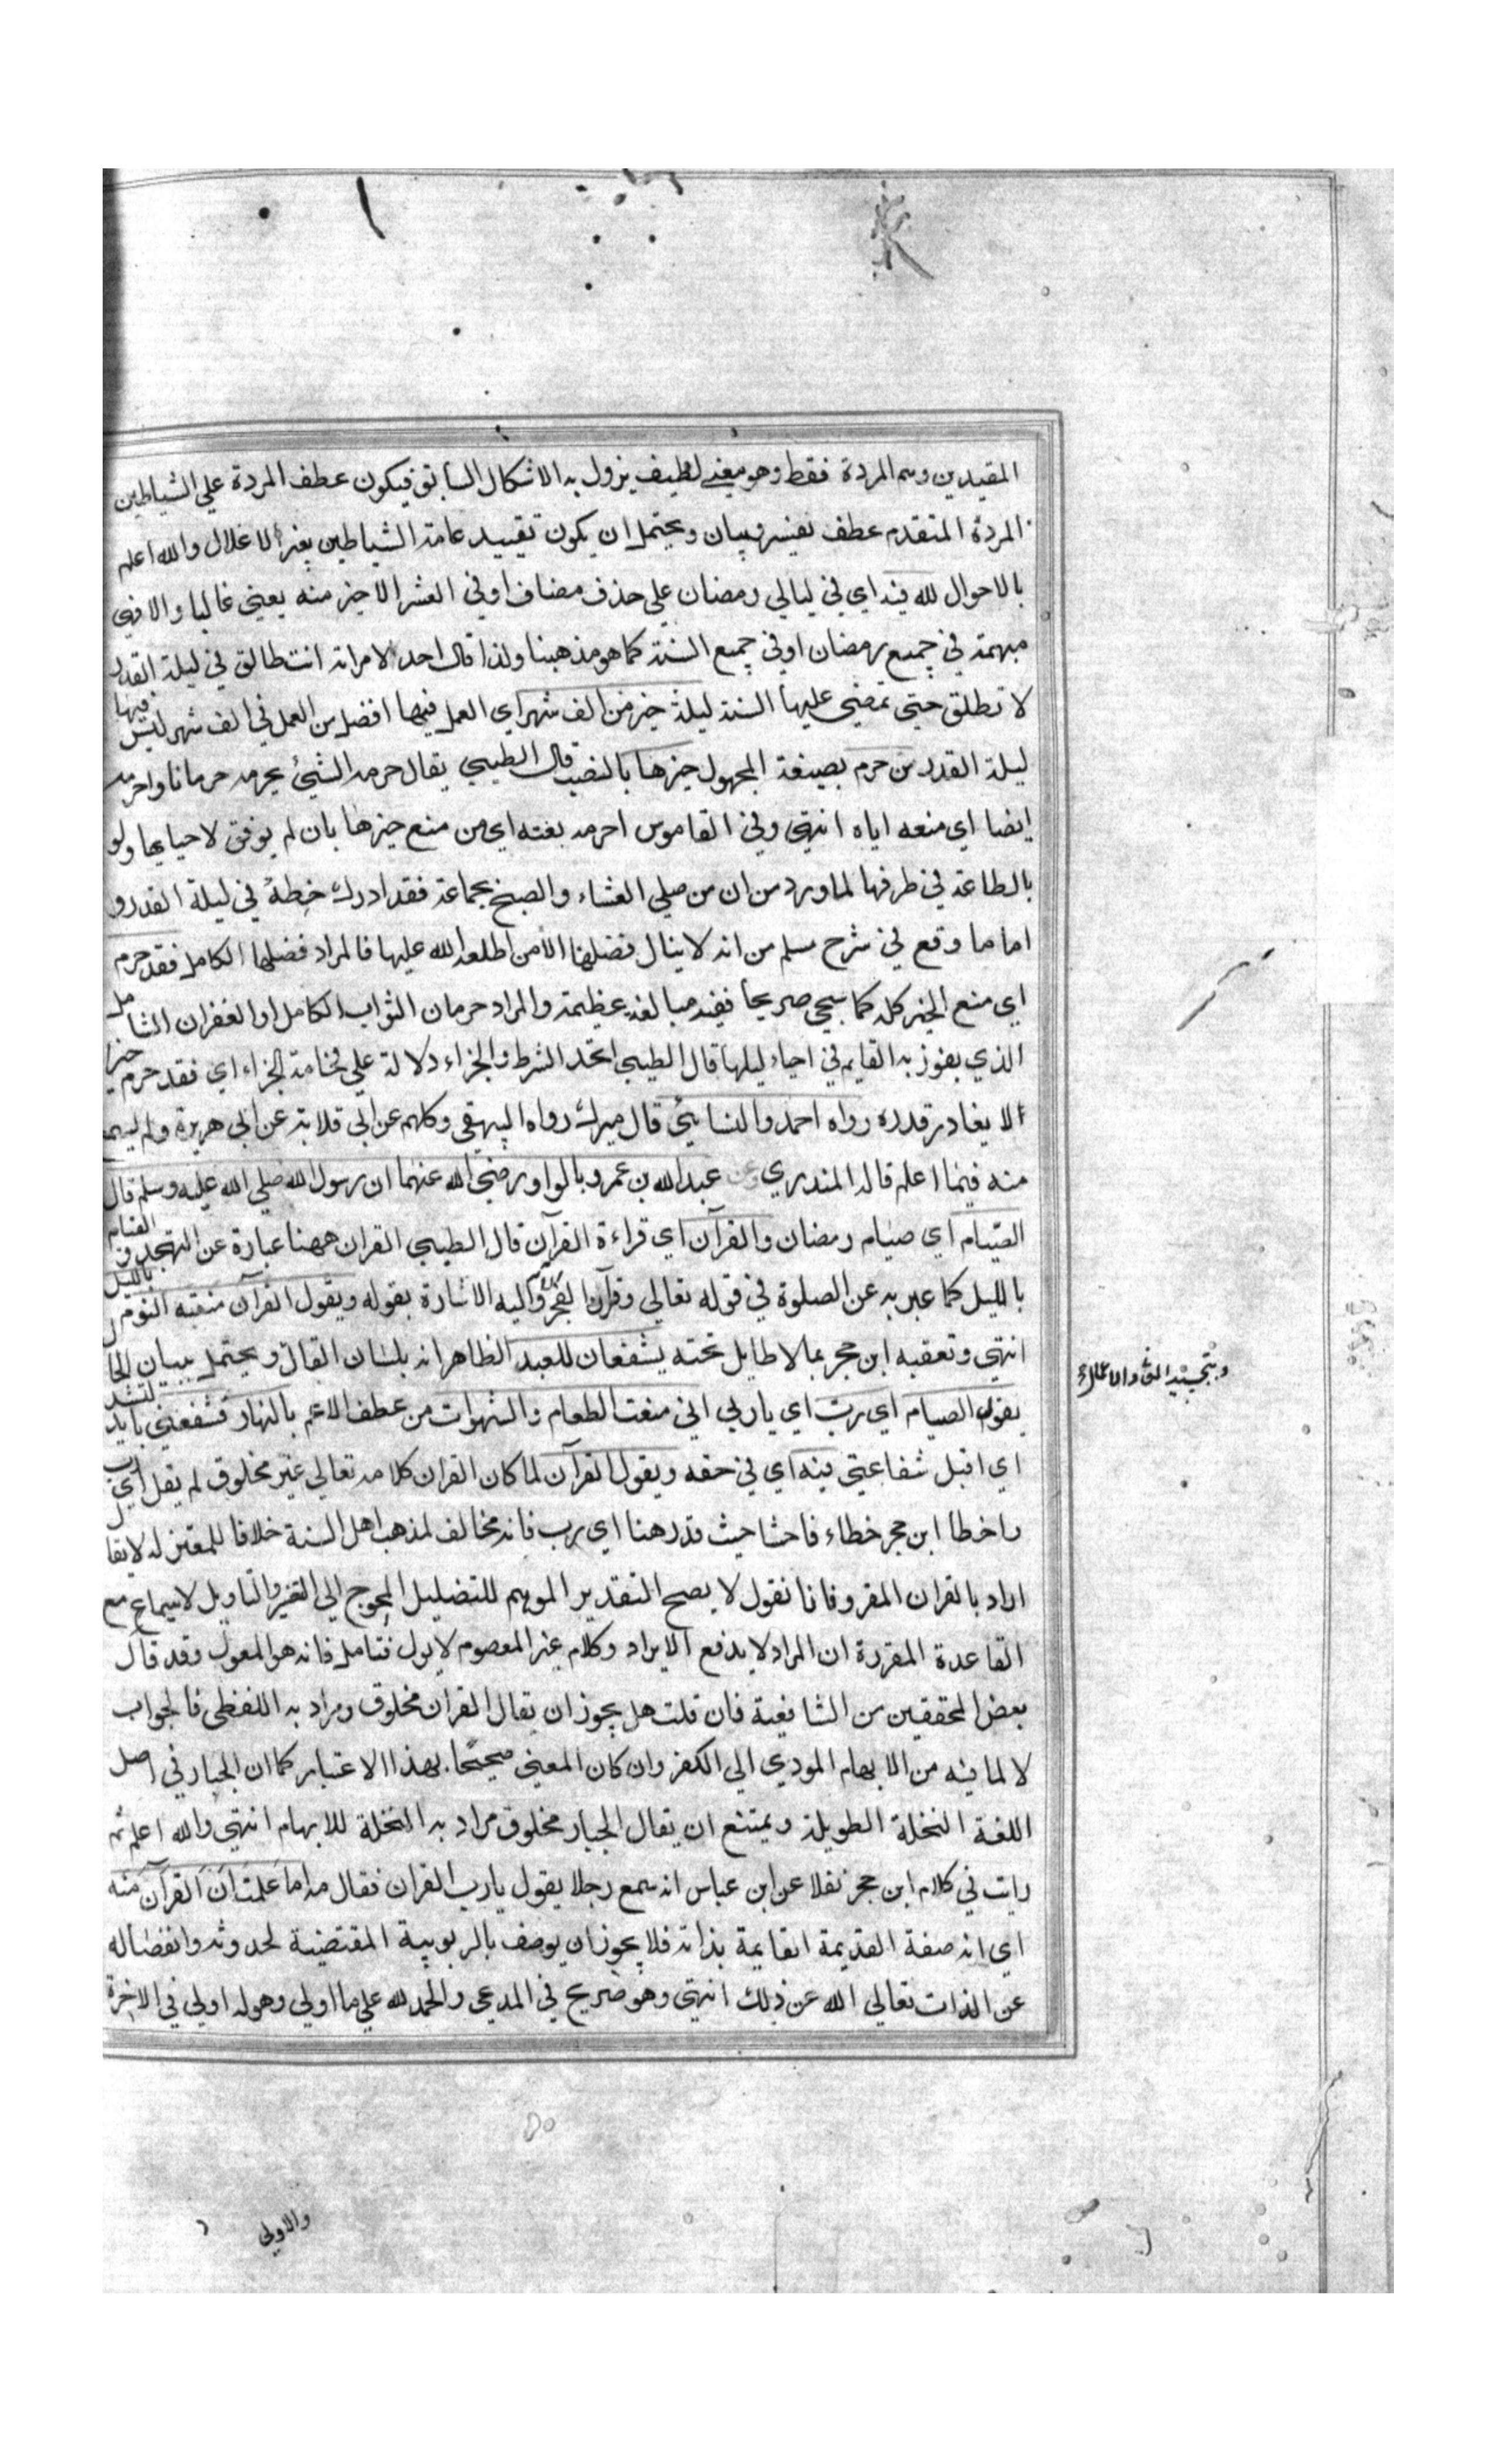 المقيدين وهم المردة فقط وهو معنى لطيف يزول به الاشكال السابق فيكون عطف المردة علي الشياطين
المردة المتقدم عطف تفسير وبيان ويحتمل ان يكون تقييد عامة الشياطين بغير الاغلال والله اعلم
بالاحوال لله فيه اي في ليالي رمضان علي حذف مضاف او في العشر الاخير منه يعني غالبا والا فهي
مبهمة في جميع رمضان او في جميع السنة كما هو مذهبنا ولذا قال احد لامراته انت طالق في ليلة القدر
لا تطلق حتي تمضي عليها السنة ليلة خير من الف شهر اي العمل فيها افضل من العمل في الف شهر ليس فيها
ليلة القدر من حرم بصيغة المجهول خيرها بالنصب قال الطيبي يقال حرمه الشئ يحرمه حرمانا واحرمه
ايضا اي منعه اياه انتهي وفي القاموس احرمه بغته اي من منع خيرها بان لم يوفق لاحيايها ولو
بالطاعة في طرفها لما ورد من ان من صلي العشاء والصبح بجماعة فقد ادرك حظه في ليلة القدر و
اما ما وقع في شرح مسلم من انه لا ينال فضلها الا من اطلعه الله عليها فالمراد فضلها الكامل فقد حرم
اي منع الخير كله كما سيجي صريحا ففيه مبالغة عظيمة والمراد حرمان الثواب الكامل او الغفران الشامل
الذي يفوز به القايم في احياء ليلها قال الطيبي اتحد الشرط والجزاء دلالة علي فخامة الجزاء اي فقد حرم خيرا
لا يغادر قدره رواه احمد والنسايئ قال ميرك رواه البيهقي وكلهم عن ابي قلابة عن ابي هريرة ولم يسمع
منه فيما اعلم قاله المنذري وعن عبد الله بن عمرو بالواو رضي الله عنهما ان رسول الله صلي الله عليه وسلم قال
الصيام اي صيام رمضان والقرآن اي قراءة القرآن قال الطيبي القران ههنا عبارة عن التهجد و القيام
بالليل كما عبر به عن الصلوة في قوله تعالي وقرآن الفجر واليه الاشارة بقوله ويقول القرآن منعته النوم بالليل
انتهي وتعقبه ابن حجر بما لا طايل تحته يشفعان للعبد الظاهر انه بلسان القال ويحتمل ببيان الحال
يقول الصيام اي رب اي يا ربي اني منعت الطعام والشهوات من عطف الاعم بالنهار فشفعني بالتشديد
اي اقبل شفاعتي فيه اي في حقه ويقول القرآن لما كان القران كلامه تعالي غير مخلوق لم يقل اي رب
واخطا ابن حجر خطاء فاحشا حيث قدر هنا اي رب فانه مخالف لمذهب اهل السنة خلافا للمعتزله لا يقال
اراد بالقران المقرو فانا نقول لا يصح التقدير الموهم للتضليل المحوج الي التغيير والتاويل لاسيما مع
القاعدة المقررة ان المراد لا يدفع الايراد وكلام غير المعصوم لا يول فتامل فانه هو المعول وقد قال
بعض المحققين من الشافعية فان قلت هل يجوز ان يقال القران مخلوق ومراد به اللفظي فالجواب
لا لما فيه من الابهام المودي الي الكفر وان كان المعني صحيحا بهذا الاعتبار كما ان الجبار في اصل
اللغة النخلة الطويلة ويمتنع ان يقال الجبار مخلوق مراد به النخلة للابهام انتهي والله اعلم ثم
رايت في كلام ابن حجر نقلا عن ابن عباس انه سمع رجلا يقول يا رب القران فقال مه اما علمت ان القرآن منه
اي انه صفة القديمة القايمة بذاته فلا يجوز ان يوصف بالربوبية المقتضية لحدوثه وانفصاله
عن الذات تعالي الله عن ذلك انتهي وهو صريح في المدعي والحمد لله علي ما اولي وهو له اولي في الاخرة
والاولي